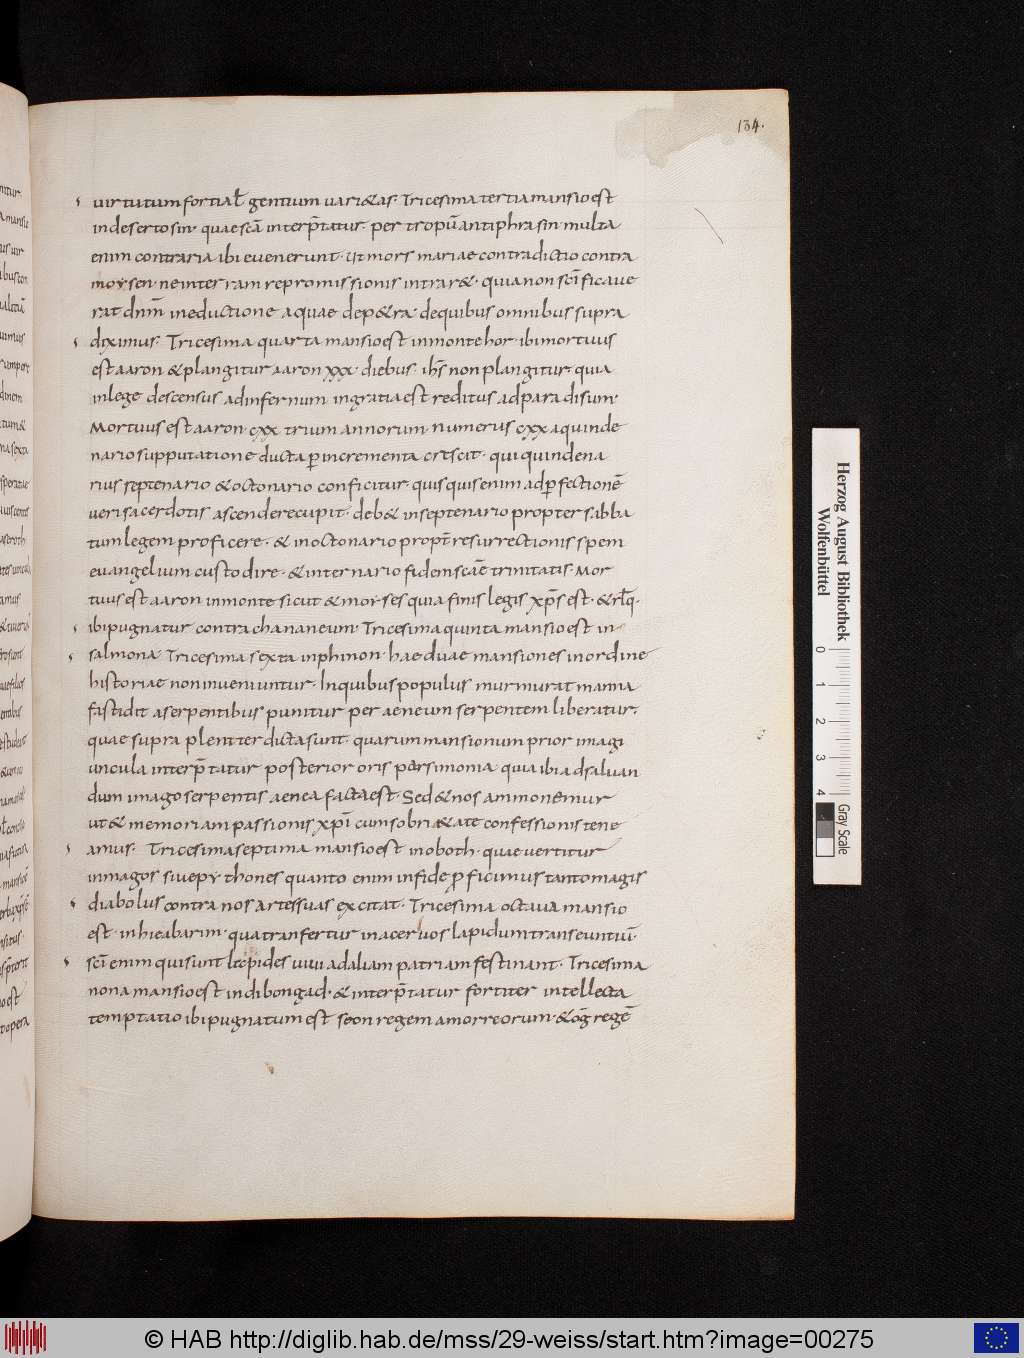 134.
uirtutum fortia ł gentium uari&as. Tricesima tertia mansio est
in deserto sin. quae scā interp̄tatur. per tropū antiphrasin multa
enim contraria ibi euenerunt. ut mors mariae contradictio contra
moysen. ne inter ram repromissionis intrar&. quia non scīficaue
rat dnm̄ in eductione aquae de p&ra. de quibus omnibus supra
diximus. Tricesima quarta mansio est in monte hor. ibi mortuus
est aaron & plangitur aaron xxx. diebus. ih̄s non plangitur. quia
in lege descensus ad infernum in gratia est reditus ad paradisum.
Mortuus est aaron. cxx trium annorum. numerus cxx a quinde
nario supputatione ducta p incrementa crescit. qui quindena
rius septenario & octonario conficitur. quisquis enim ad pfectionē
ueri sacerdotis ascendere cupit. deb& in septenario propter sabba
tum legem proficere. & in octonario propt̄ resurrectionis spem
euangelium custodire. & in ternario fidem scāe trinitatis. Mor
tuus est aaron in monte sicut & moyses quia finis legis xp̄s est. & rƚq.
ibi pugnatur contra chananeum. Tricesima quinta mansio est in
salmona Tricesima sexta in phinon. hae duae mansiones in ordine
historiae non inueniuntur. In quibus populus murmurat manna
fastidit a serpentibus punitur per aeneum serpentem liberatur.
quae supra plenit̄ dicta sunt. quarum mansionum prior imagi
uncula interp̄tatur posterior oris parsimonia quia ibi ad saluan
dum imago serpentis aenea facta est. Sed & nos ammonemur
ut & memoriam passionis xp̄i cum sobri&ate confessionis tene
amus. Tricesima septima mansio est in oboth. quae uertitur
in magos siue pythones quanto enim in fide p̱ficimus tanto magis
diabolus contra nos artes suas excitat. Tricesima octaua mansio
est. in hieabarim. qua tranfertur in aceruos lapidum transeuntiū.
scī enim qui sunt lapides uiui ad aliam patriam festinant. Tricesima
nona mansio est in dibongad. & interp̄tatur fortiter intellecta
temptatio ibi pugnatum est seon regem amorreorum. & og regē
Herzog August Bibliothek
Wolfenbüttel
0 1 2 3 4
Gray Scale
© HAB http://diglib.hab.de/mss/29-weiss/start.htm?image=00275